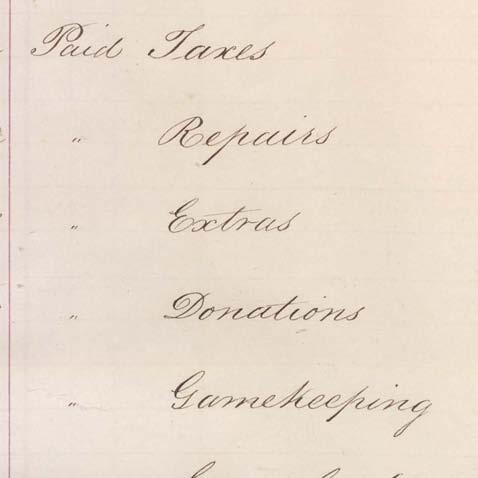 Paid Taxes
" Repairs
" Extras
" Donations
" Gamekeeping